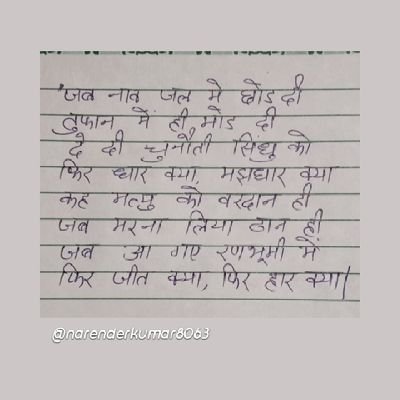 'जब नाव जल मे छोड दी
तुफान में ही मोड दी
दे दी चुनौती सिंधु को
फिर धार क्या मझधार क्या
कह मत्यु को वरदान ही
जब मरना लिया ठान ही
जब आ गए रणभूमी में
फिर जीत क्या, फिर हार क्या।
@narenderkumar8063